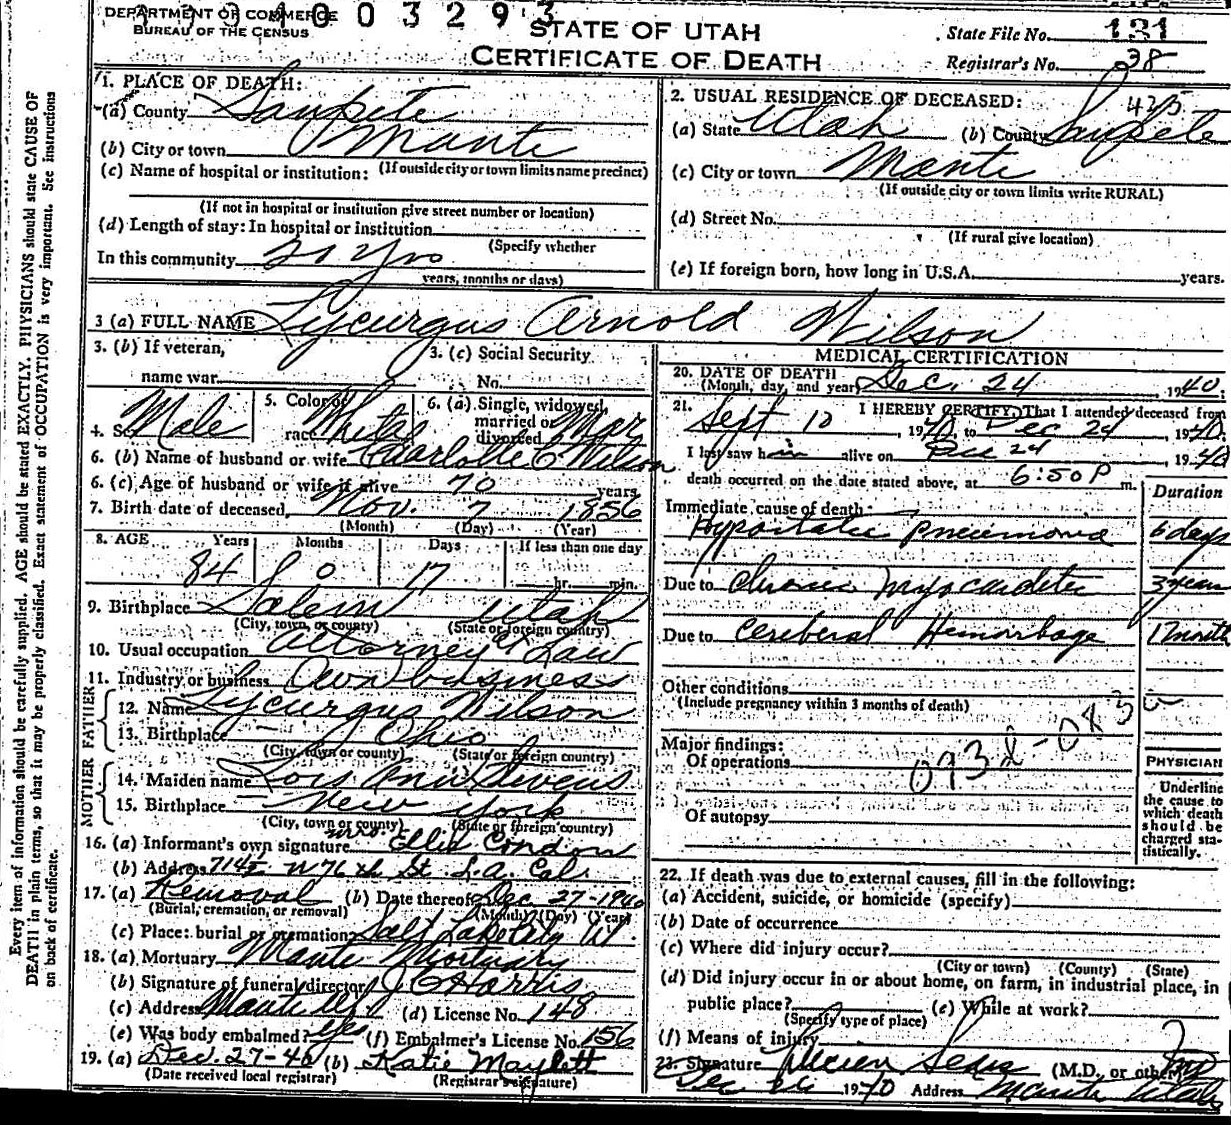 DEPARTMENT OF COMMERCE
BUREAU OF THE CENSUS
1003293
STATE OF UTAH
CERTIFICATE OF DEATH
State File No. 131
Registrar's No. 38
1. PLACE OF DEATH:
(a) County Sanpete
(b) City or town Manti
(If outside city or town limits name precinct)
(c) Name of hospital or institution:
(If not in hospital or institution give street number or location)
(d) Length of stay: In hospital or institution
(Specify whether
In this community 20 yrs
years, months or days)
2. USUAL RESIDENCE OF DECEASED: 425
(a) State Utah (b) County Sanpete
(c) City or town Manti
(If outside city or town limits write RURAL)
(d) Street No.
(If rural give location)
(e) If foreign born, how long in U.S.A. years.
3 (a) FULL NAME Lycurgus Arnold Wilson
3. (b) If veteran,
name war
3. (c) Social Security
No.
4. Sex Male
5. Color or race White
6. (a) Single, widowed, married or divorced Mar
6. (b) Name of husband or wife Charlotte C Wilson
6. (c) Age of husband or wife if alive 70 years
7. Birth date of deceased Nov. 7 1856
(Month) (Day) (Year)
8. AGE Years Months Days If less than one day
84 0 17 hr. min.
9. Birthplace Salem Utah
(City, town, or county) (State or foreign country)
10. Usual occupation Attorney at Law
11. Industry or business Own business
FATHER
12. Name Lycurgus Wilson
13. Birthplace Ohio
(City, town or county) (State or foreign country)
MOTHER
14. Maiden name Lois Ann Stevens
15. Birthplace New York
(City, town or county) (State or foreign country)
16. (a) Informant's own signature Mrs. Ellis Condon
(b) Address 714½ W 76th St. L.A. Cal.
17. (a) Removal (b) Date thereof Dec 27-1940
(Burial, cremation, or removal) (Month) (Day) (Year)
(c) Place: burial or cremation Salt Lake City Ut.
18. (a) Mortuary Manti Mortuary
(b) Signature of funeral director J C Harris
(c) Address Manti Ut (d) License No. 148
(e) Was body embalmed? Yes (f) Embalmer's License No. 156
19. (a) Dec. 27-40 (b) Katie Maylett
(Date received local registrar) (Registrar's signature)
MEDICAL CERTIFICATION
20. DATE OF DEATH
(Month, day, and year) Dec. 24 1940
21. I HEREBY CERTIFY, That I attended deceased from
Sept 10, 1940, to Dec 24, 1940.
I last saw him alive on Dec 24 1940
death occurred on the date stated above, at 6:50 P m.
Duration
Immediate cause of death
Hypostatic Pneumonia 6 days
Due to Chronic Myocarditis 3 years
Due to Cerebral Hemorrhage 1 month
Other conditions
(Include pregnancy within 3 months of death)
Major findings:
Of operations
Of autopsy
PHYSICIAN
Underline the cause to which death should be charged statistically.
22. If death was due to external causes, fill in the following:
(a) Accident, suicide, or homicide (specify)
(b) Date of occurrence
(c) Where did injury occur?
(City or town) (County) (State)
(d) Did injury occur in or about home, on farm, in industrial place, in
public place? (e) While at work?
(Specify type of place)
(f) Means of injury
23. Signature Lucien Sears (M.D., or other) MD
Dec 26 1940 Address Manti Utah
Every item of information should be carefully supplied. AGE should be stated EXACTLY. PHYSICIANS should state CAUSE OF
DEATH in plain terms, so that it may be properly classified. Exact statement of OCCUPATION is very important. See instructions
on back of certificate.